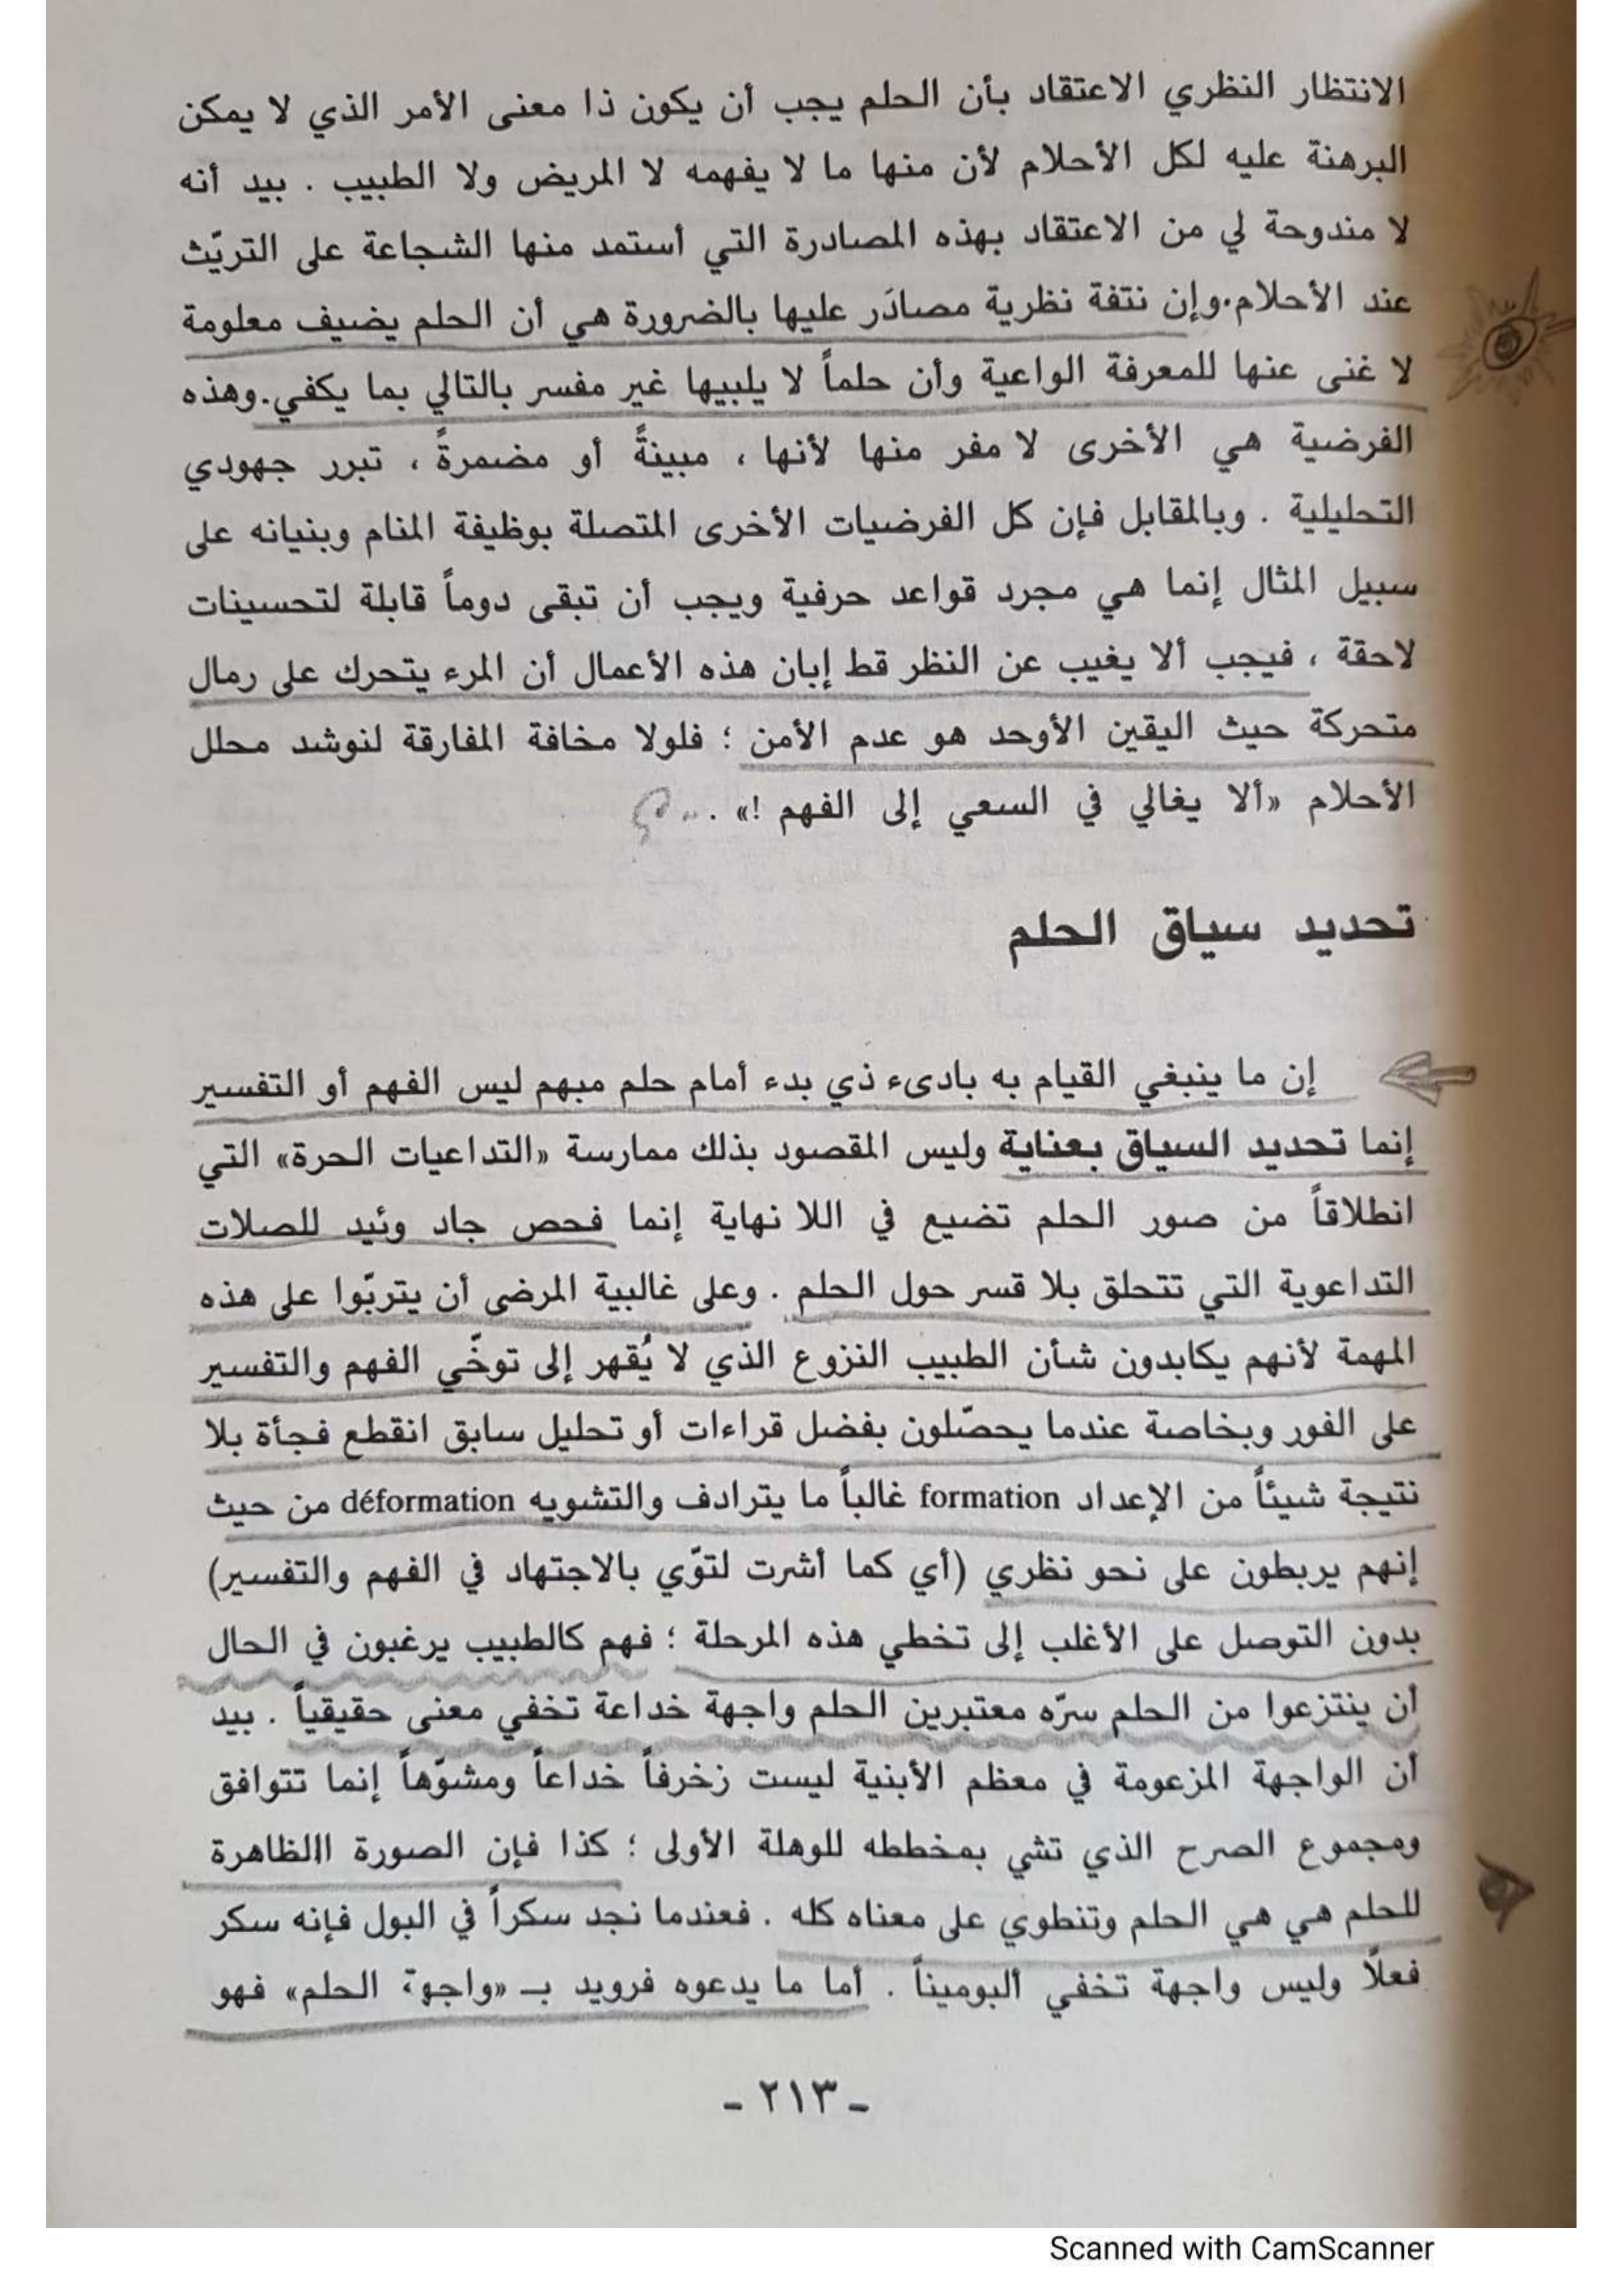 الانتظار النظري الاعتقاد بأن الحلم يجب أن يكون ذا معنى الأمر الذي لا يمكن
البرهنة عليه لكل الأحلام لأن منها ما لا يفهمه لا المريض ولا الطبيب . بيد أنه
لا مندوحة لي من الاعتقاد بهذه المصادرة التي أستمد منها الشجاعة على التريّث
عند الأحلام.وإن نتفة نظرية مصادَر عليها بالضرورة هي أن الحلم يضيف معلومة
لا غنى عنها للمعرفة الواعية وأن حلماً لا يلبيها غير مفسر بالتالي بما يكفي.وهذه
الفرضية هي الأخرى لا مفر منها لأنها ، مبينةً أو مضمرةً ، تبرر جهودي
التحليلية . وبالمقابل فإن كل الفرضيات الأخرى المتصلة بوظيفة المنام وبنيانه على
سبيل المثال إنما هي مجرد قواعد حرفية ويجب أن تبقى دوماً قابلة لتحسينات
لاحقة ، فيجب ألا يغيب عن النظر قط إبان هذه الأعمال أن المرء يتحرك على رمال
متحركة حيث اليقين الأوحد هو عدم الأمن ؛ فلولا مخافة المفارقة لنوشد محلل
الأحلام «ألا يغالي في السعي إلى الفهم !» .
تحديد سياق الحلم
إن ما ينبغي القيام به بادىء ذي بدء أمام حلم مبهم ليس الفهم أو التفسير
إنما تحديد السياق بعناية وليس المقصود بذلك ممارسة «التداعيات الحرة» التي
انطلاقاً من صور الحلم تضيع في اللا نهاية إنما فحص جاد وئيد للصلات
التداعوية التي تتحلق بلا قسر حول الحلم . وعلى غالبية المرضى أن يتربّوا على هذه
المهمة لأنهم يكابدون شأن الطبيب النزوع الذي لا يُقهر إلى توخّي الفهم والتفسير
على الفور وبخاصة عندما يحصّلون بفضل قراءات أو تحليل سابق انقطع فجأة بلا
نتيجة شيئاً من الإعداد formation غالباً ما يترادف والتشويه déformation من حيث
إنهم يربطون على نحو نظري (أي كما أشرت لتوّي بالاجتهاد في الفهم والتفسير)
بدون التوصل على الأغلب إلى تخطي هذه المرحلة ؛ فهم كالطبيب يرغبون في الحال
أن ينتزعوا من الحلم سرّه معتبرين الحلم واجهة خداعة تخفي معنى حقيقياً . بيد
أن الواجهة المزعومة في معظم الأبنية ليست زخرفاً خداعاً ومشوّهاً إنما تتوافق
ومجموع الصرح الذي تشي بمخططه للوهلة الأولى ؛ كذا فإن الصورة االظاهرة
للحلم هي هي الحلم وتنطوي على معناه كله . فعندما نجد سكراً في البول فإنه سكر
فعلًا وليس واجهة تخفي ألبوميناً . أما ما يدعوه فرويد بـ «واجهة الحلم» فهو
ـ ٢١٣ ـ
Scanned with CamScanner